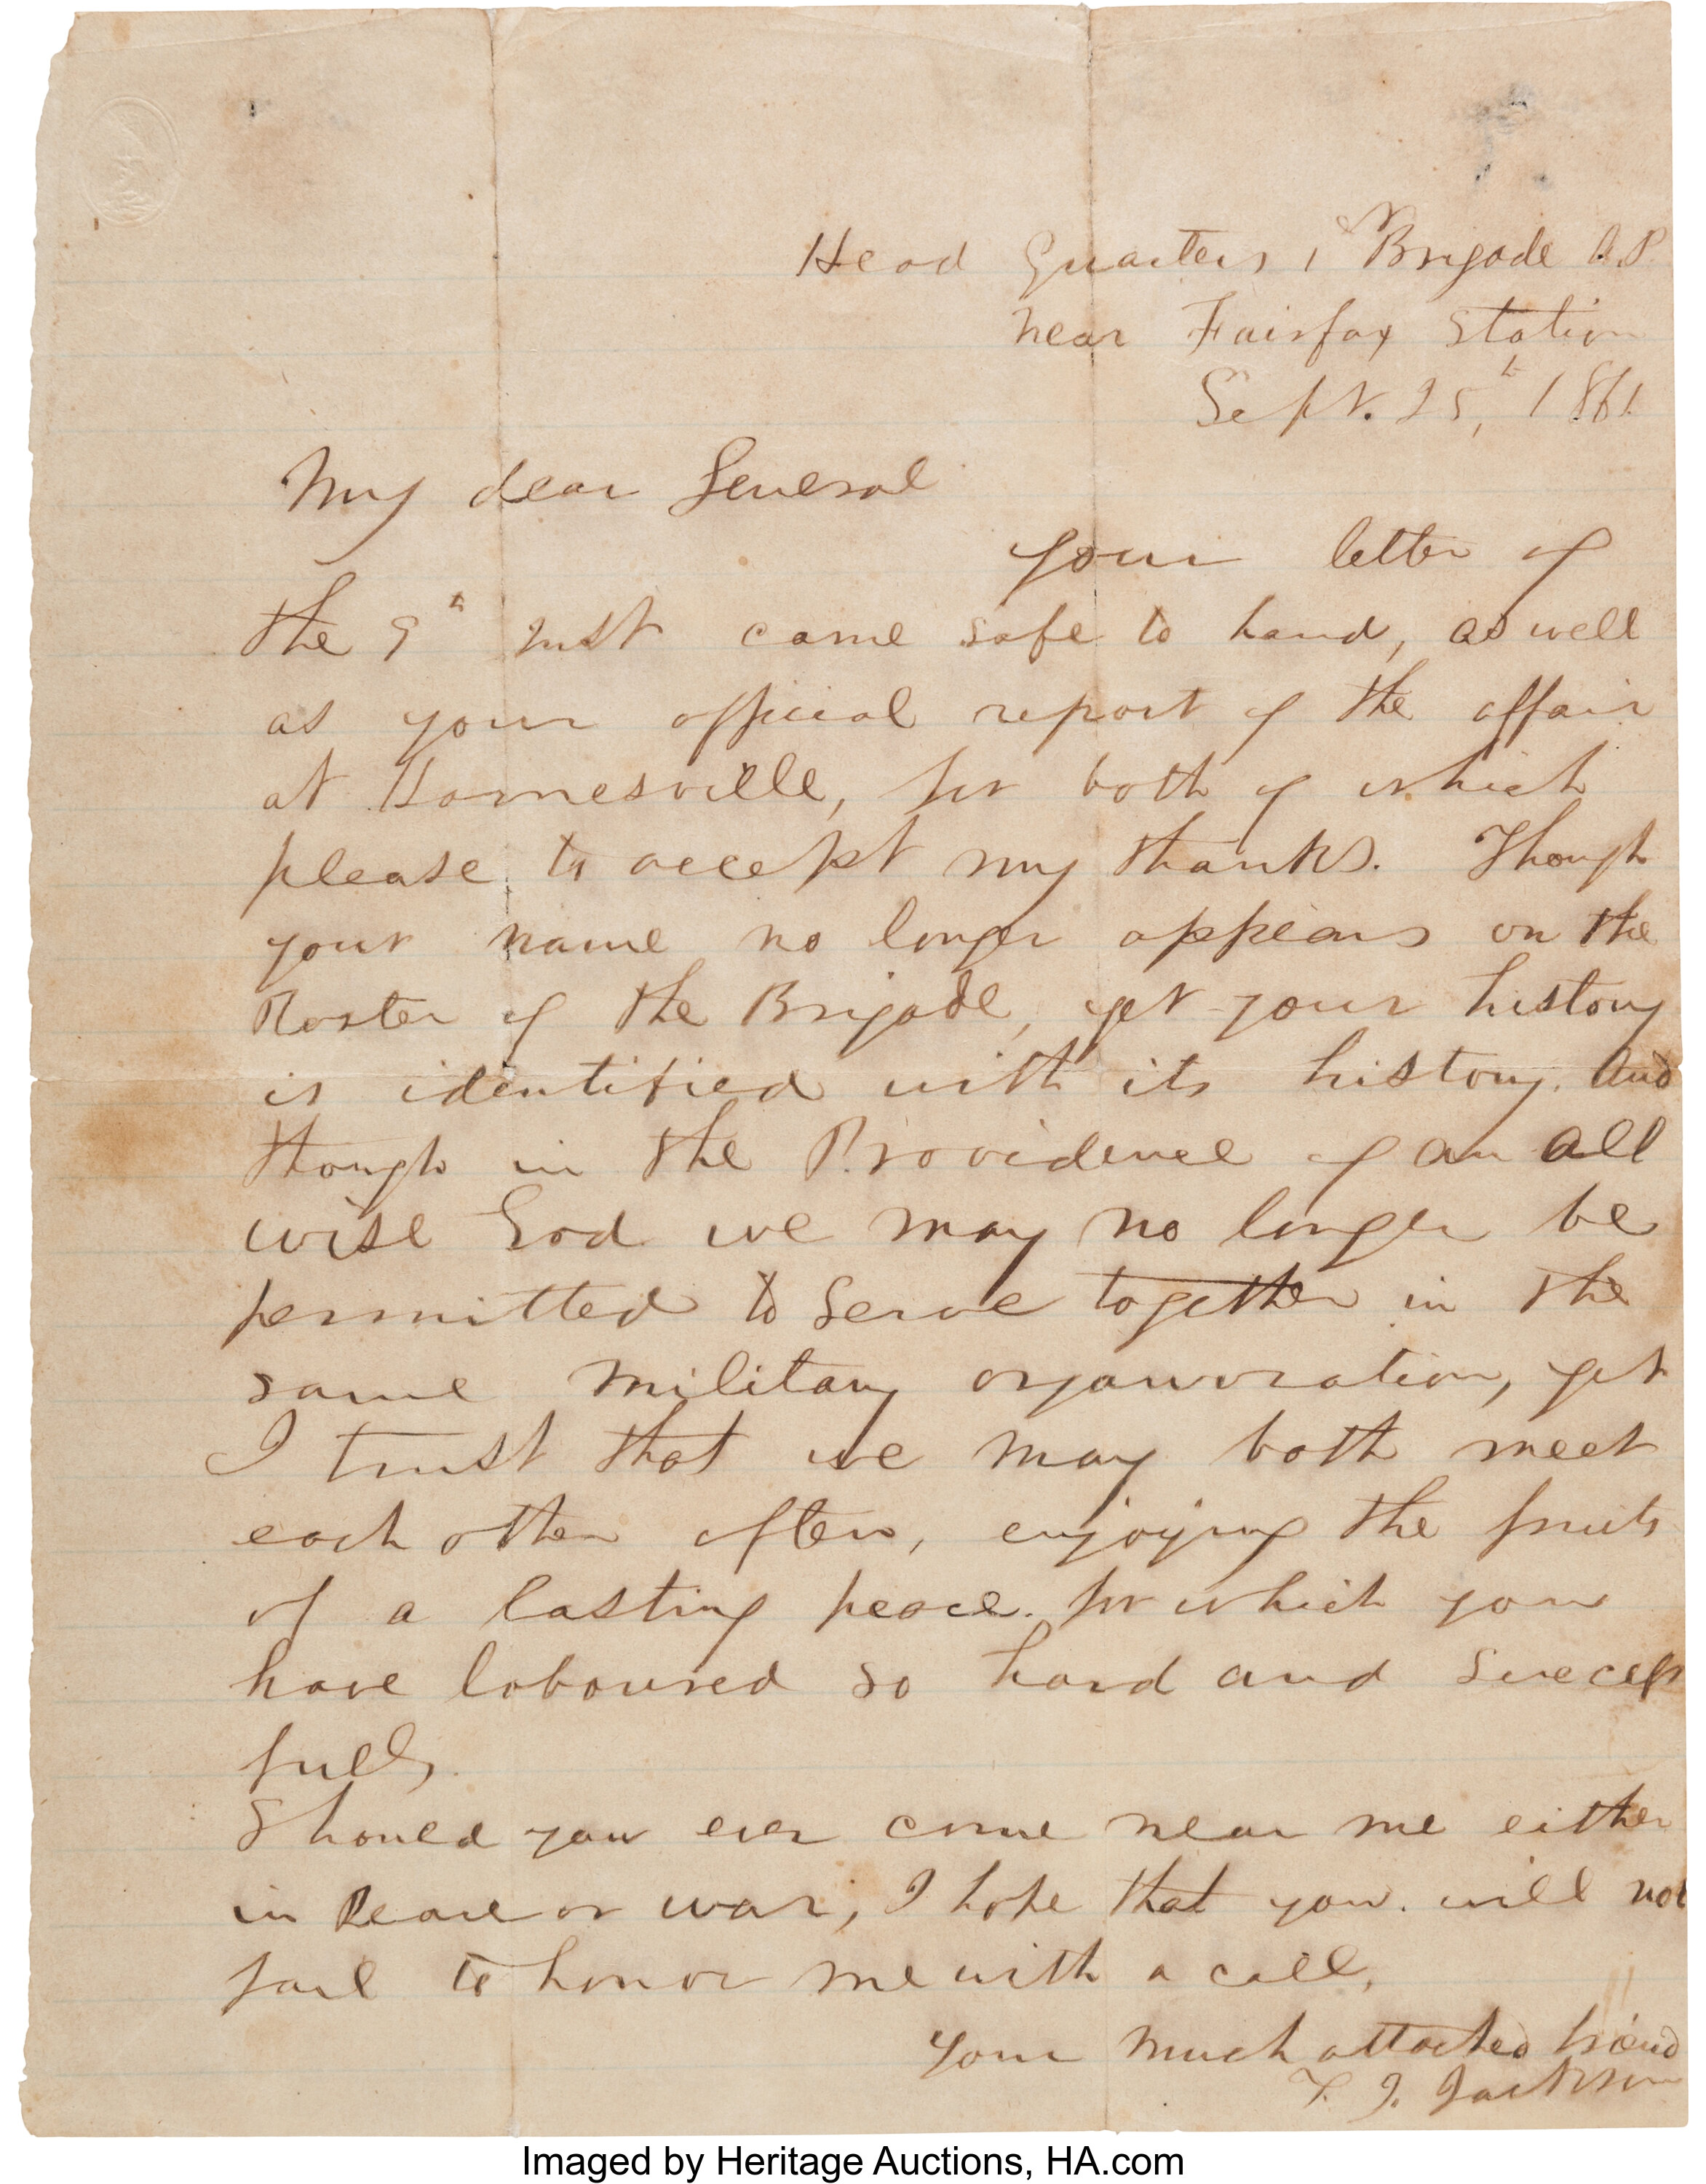 Head Quarters 1st Brigade A.P.
near Fairfax Station
Sept. 25th, 1861
My dear General
Your letter of
the 9th Inst came safe to hand, as well
as your official report of the affair
at Hainesville, for both of which
please to accept my thanks. Though
your name no longer appears on the
Roster of the Brigade, yet your history
is identified with its history. And
though in the Providence of an all
wise God we may no longer be
permitted to serve together in the
same military organization, yet
I trust that we may both meet
each other often, enjoying the fruits
of a lasting peace. for which you
have laboured so hard and success
fully.
Should you ever come near me either
in Peace or war, I hope that you will not
fail to honor me with a call,
Your much attached friend
T. J. Jackson
Imaged by Heritage Auctions, HA.com